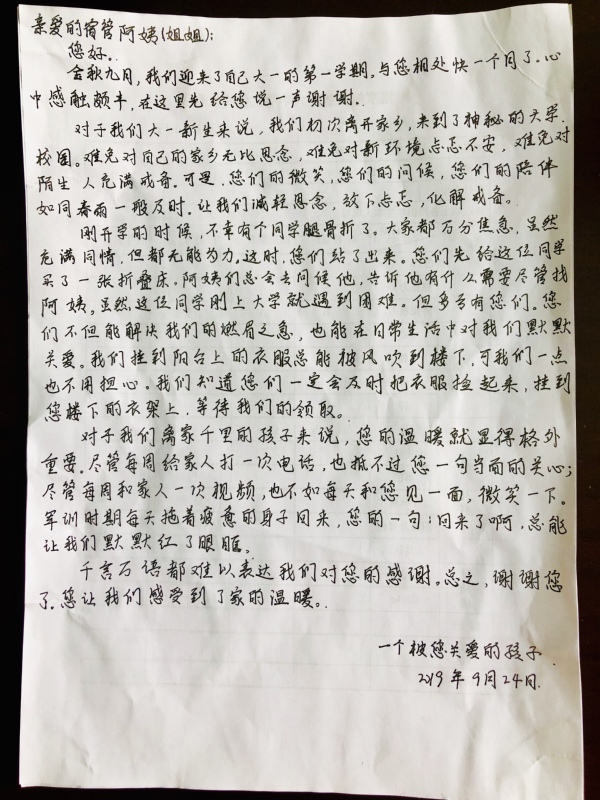 亲爱的宿管阿姨(姐姐):
您好.
金秋九月,我们迎来了自己大一的第一学期。与您相处快一个月了。心
中感触颇丰,在这里先给您说一声谢谢.
对于我们大一新生来说,我们初次离开家乡,来到了神秘的大学
校园。难免对自己的家乡无比思念,难免对新环境忐忑不安,难免对
陌生人充满戒备。可是,您们的微笑,您们的问候,您们的陪伴
如同春雨一般及时.让我们减轻思念,放下忐忑,化解戒备。
刚开学的时候,不幸有个同学腿骨折了。大家都万分焦急,虽然
充满同情,但都无能为力,这时,您们站了出来。您们先给这位同学
买了一张折叠床。阿姨们总会去问候他,告诉他有什么需要尽管找
阿姨。虽然这位同学刚上大学就遇到困难。但多亏有您们。您
们不但能解决我们的燃眉之急,也能在日常生活中对我们默默
关爱。我们挂到阳台上的衣服总能被风吹到楼下,可我们一点
也不用担心。我们知道您们一定会及时把衣服捡起来,挂到
您楼下的衣架上,等待我们的领取。
对于我们离家千里的孩子来说,您的温暖就显得格外
重要。尽管每周给家人打一次电话,也抵不过您一句当面的关心;
尽管每周和家人一次视频,也不如每天和您见一面,微笑一下。
军训时期每天拖着疲惫的身子回来,您的一句:回来了啊,总能
让我们默默红了眼眶。
千言万语都难以表达我们对您的感谢。总之,谢谢您
了。您让我们感受到了家的温暖。
一个被您关爱的孩子
2019年9月24日.